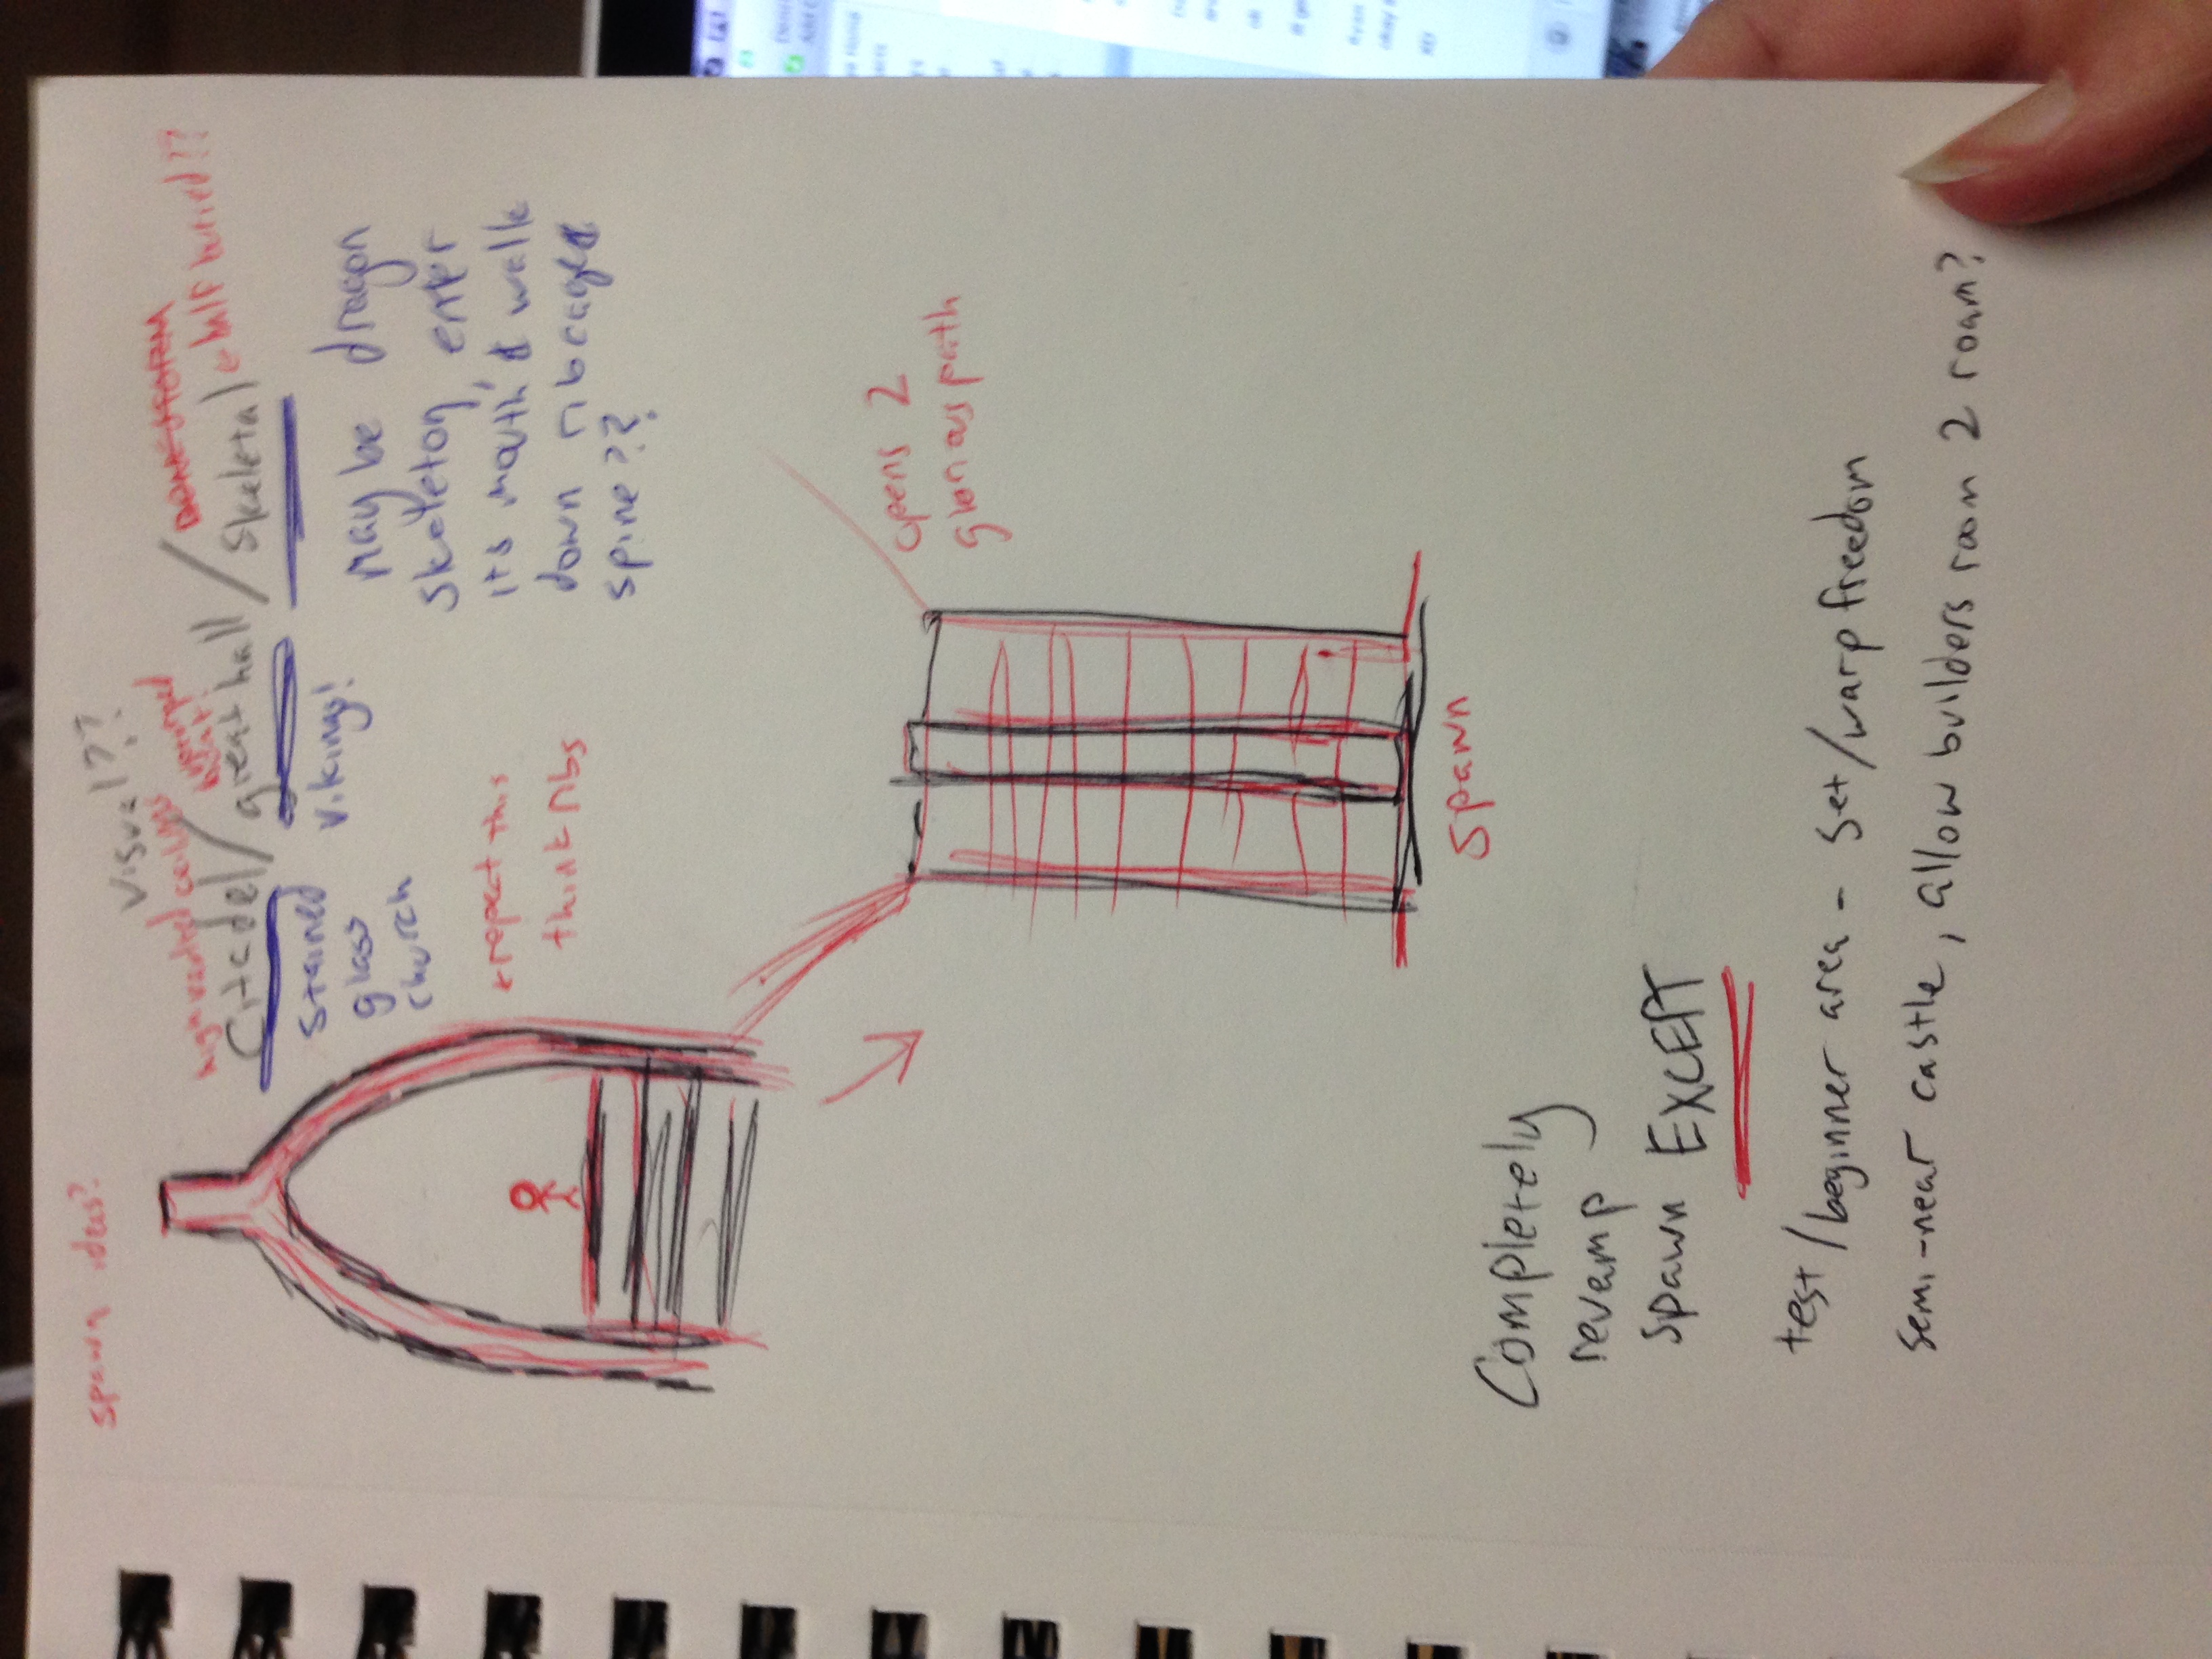 spawn idea?
visual??
high vaulted ceilings
Citadel / great hall / skeletal
half buried??
stained
glass
church
vikings!
May be dragon
skeleton, enter
its mouth & walk
down ribcage
spine??
repeat this
think ribs
opens 2
path
Spawn
Completely
revamp
spawn EXCEPT
test/beginner area - set/warp freedom
semi-near castle, allow builders room 2 roam?